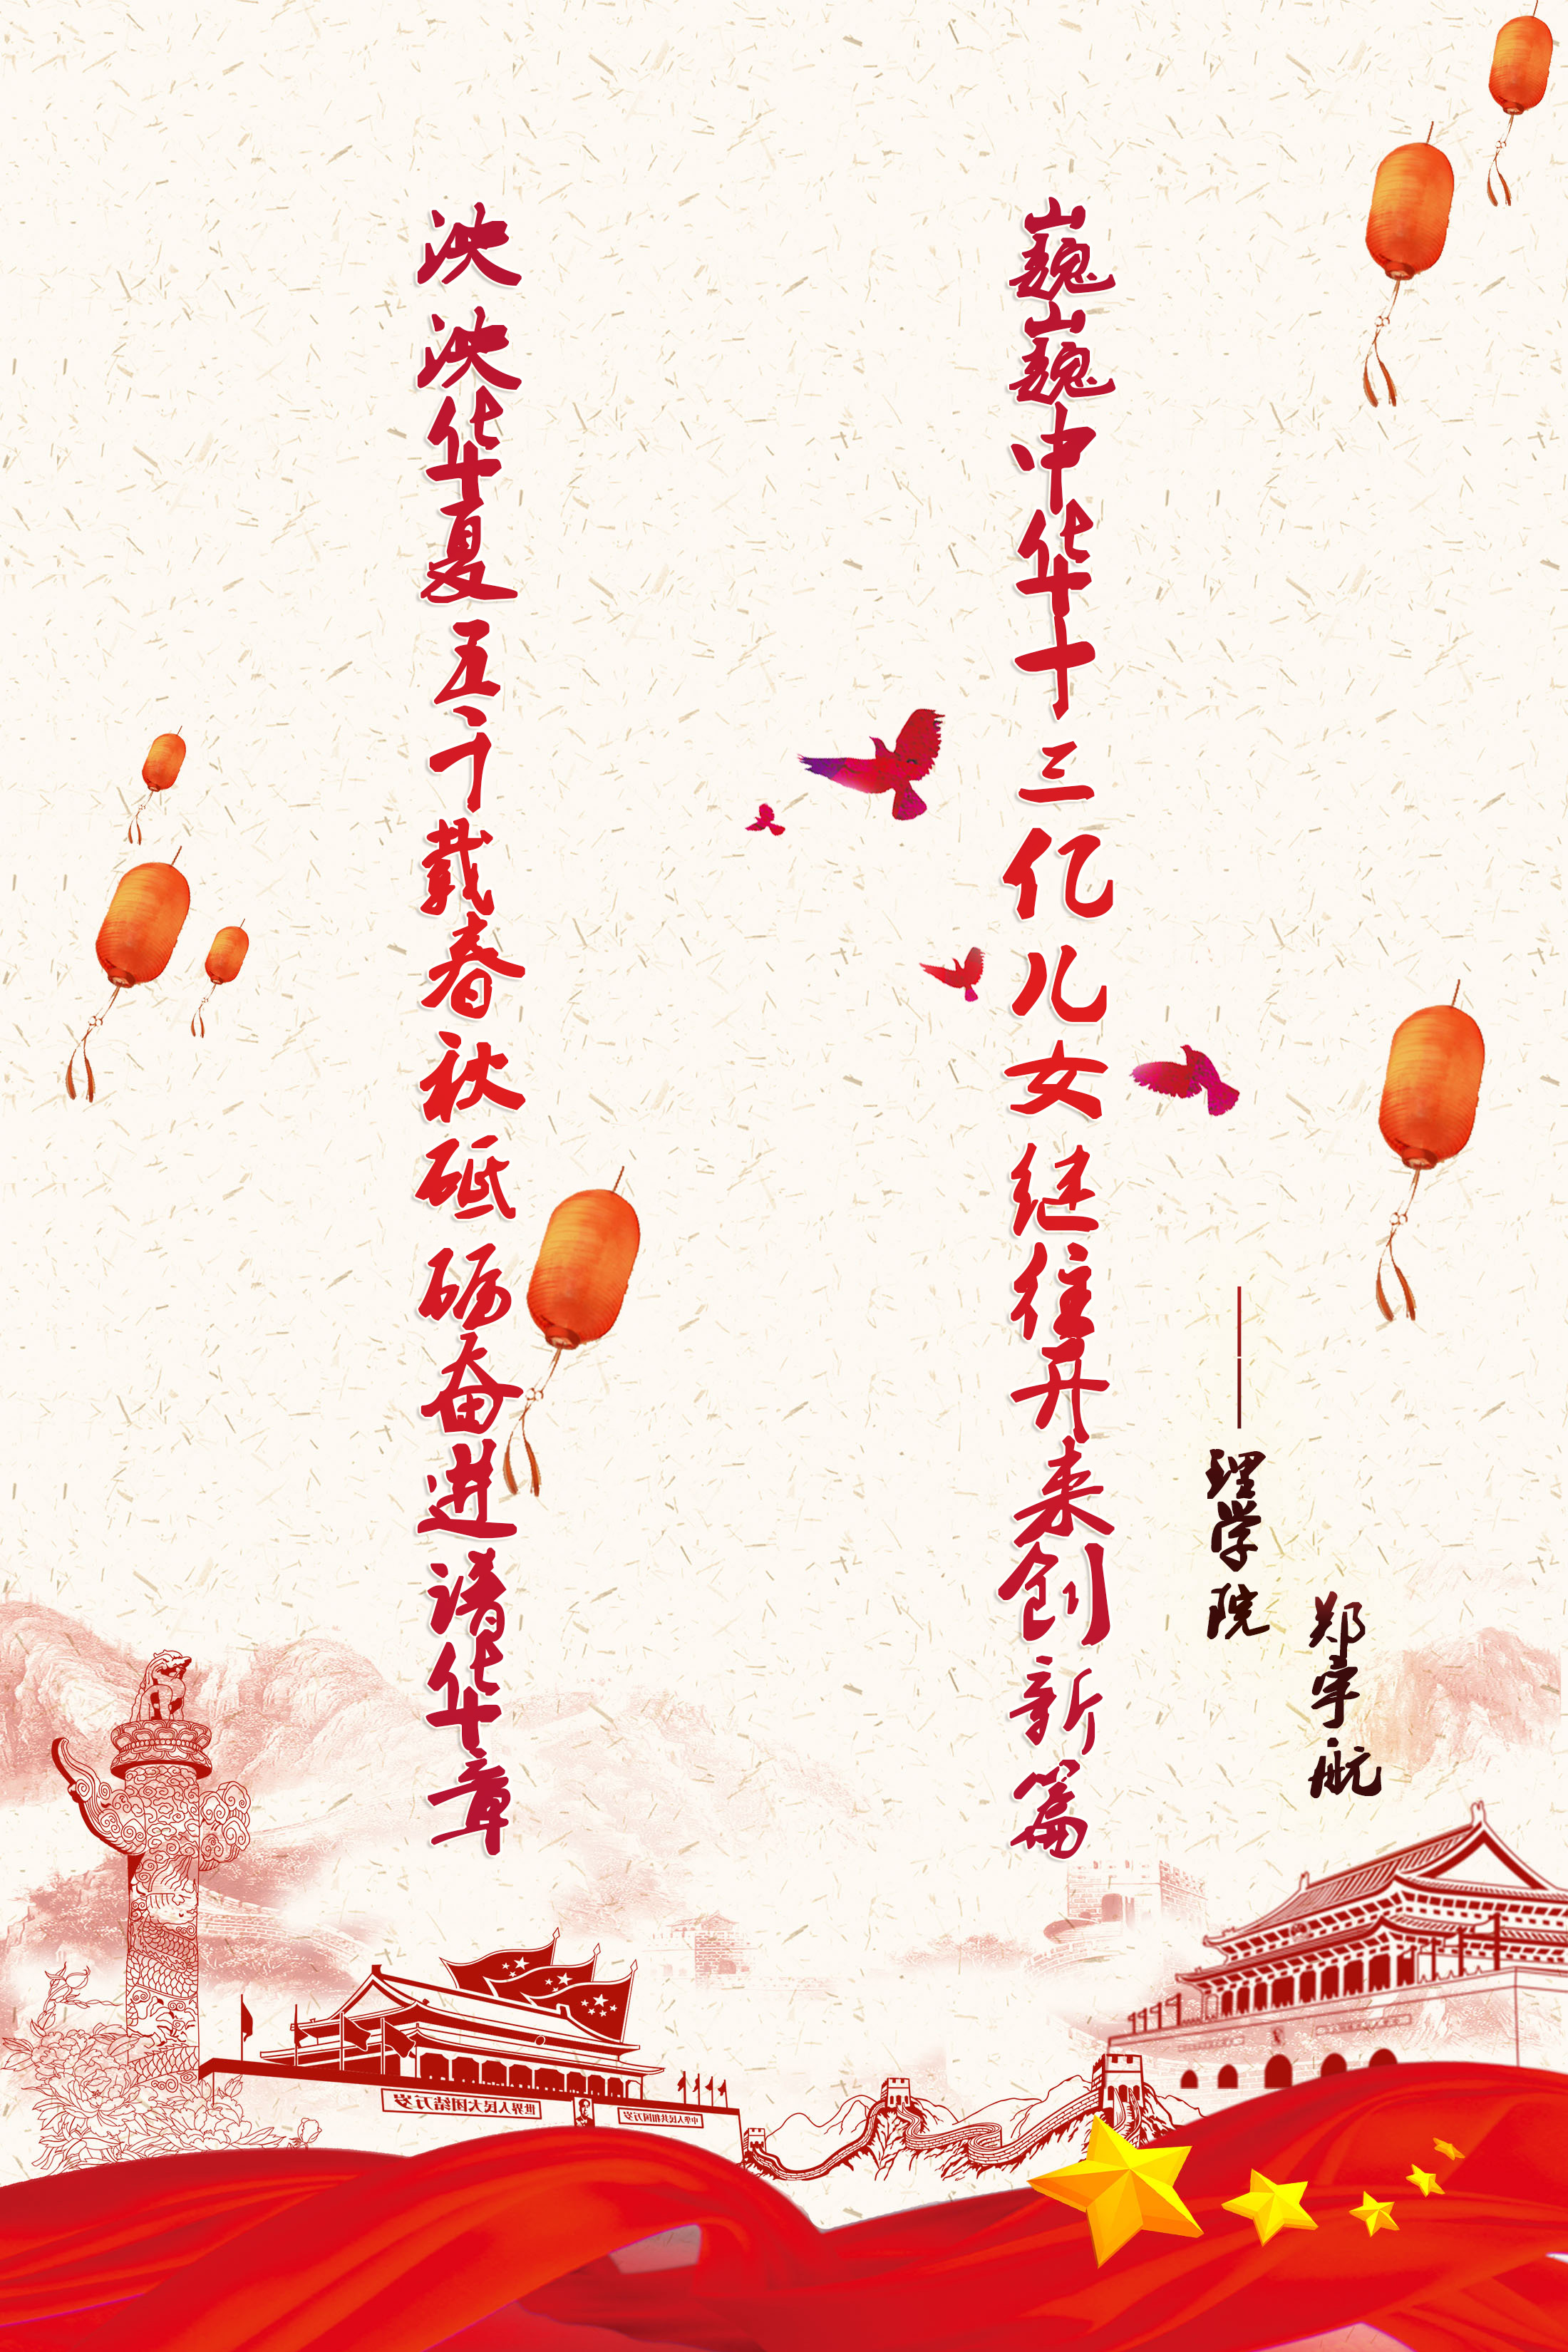 泱泱华夏五千载春秋砥砺奋进谱华章
巍巍中华十三亿儿女继往开来创新篇
——理学院
郑宇航
世界人民大团结万岁
中华人民共和国万岁